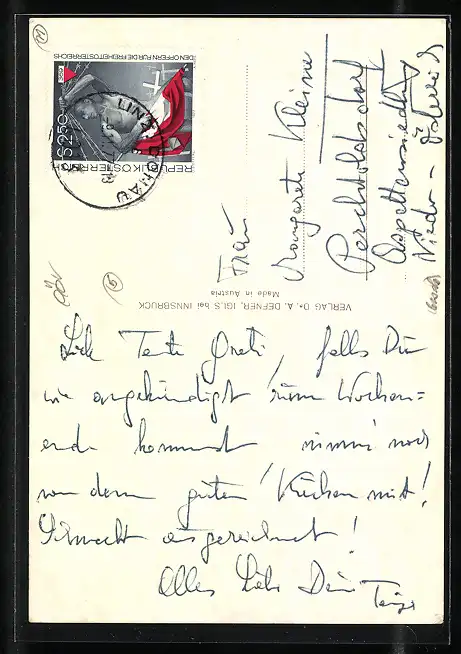 DEN OPFERN FÜR DIE FREIHEIT ÖSTERREICHS
S 2.50
REPUBLIK ÖSTERREICH
LINZ
Frau
Margarete Kleine
Perchtoldsdorf
Aspettensiedlung
Nieder-Österreich
VERLAG Dr. A. DEFNER, IGLS bei INNSBRUCK
Made in Austria
Liebe Tante Greti, falls Du
wie angekündigt zum Wochen=
ende kommst nimm noch
von dem guten Kuchen mit!
Schmeckt ausgezeichnet!
Alles Liebe Dein